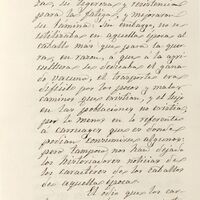 da, su ligereza y resistencia
para la fatiga, y mejoraron
su famina. Sin embargo, no se
utilizaba en aquella época al
caballo mas que para la gue-
rra, en razon, a que a la agri-
cultura se dedicaba el gana-
do vacuno, el trasporte era
dificil por los pocos y malos
caminos que existian, y el lujo
en las poblaciones no existia,
por lo menos en lo referente
a carruages que es donde
podian consumirse algunos;
pero tampoco nos han dejado
los historiadores noticias de
los caracteres de los caballos
de aquella época.
El sitio que los car-